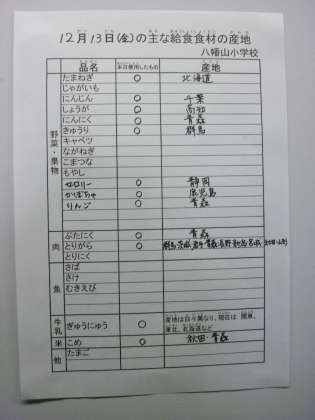 12月13日(金)の主な給食食材の産地
八幡山小学校
品名 本日使用したもの 産地
野菜・果物
たまねぎ ○ 北海道
じゃがいも
にんじん ○ 千葉
しょうが ○ 高知
にんにく ○ 青森
きゅうり ○ 群馬
キャベツ
ながねぎ
こまつな
もやし
セロリー ○ 静岡
かぼちゃ ○ 鹿児島
りんご ○ 青森
肉
ぶたにく ○ 青森
とりがら ○ 群馬 茨城 岩手 青森 長野
とりにく
魚
さば
さけ
むきえび
牛乳
ぎゅうにゅう ○ 産地は日々異なり、現在は 関東、
東北、北海道など
米 こめ ○ 秋田・青森
他 たまご